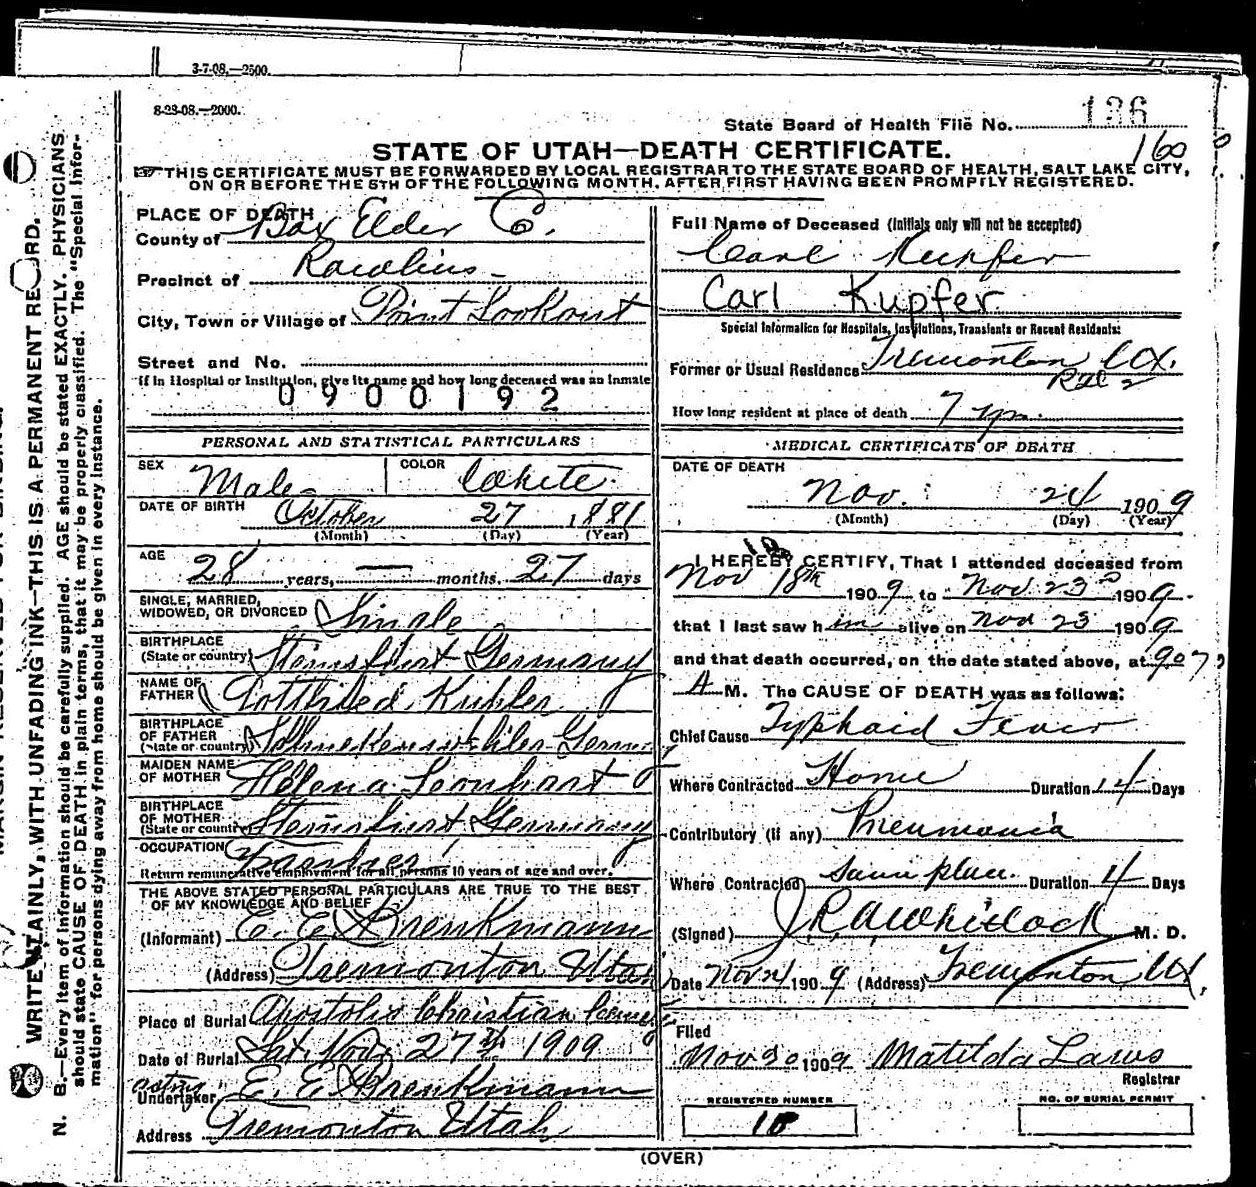 3-7-08.—2500.
8-23-08.—2000.
State Board of Health File No. 136
160
STATE OF UTAH—DEATH CERTIFICATE.
THIS CERTIFICATE MUST BE FORWARDED BY LOCAL REGISTRAR TO THE STATE BOARD OF HEALTH, SALT LAKE CITY,
ON OR BEFORE THE 5TH OF THE FOLLOWING MONTH, AFTER FIRST HAVING BEEN PROMPTLY REGISTERED.
PLACE OF DEATH
County of Box Elder Co.
Precinct of
City, Town or Village of Point Lookout
Street and No.
If in Hospital or Institution, give its name and how long deceased was an inmate
0900192
PERSONAL AND STATISTICAL PARTICULARS
SEX Male COLOR White
DATE OF BIRTH October 27 1881
(Month) (Day) (Year)
AGE 28 years, — months, 27 days
SINGLE, MARRIED,
WIDOWED, OR DIVORCED Single
BIRTHPLACE
(State or country) Germany
NAME OF
FATHER
BIRTHPLACE
OF FATHER
(State or country)
MAIDEN NAME
OF MOTHER Helena Leonhart
BIRTHPLACE
OF MOTHER
(State or country) Germany
OCCUPATION
Return remunerative employment for all persons 10 years of age and over.
THE ABOVE STATED PERSONAL PARTICULARS ARE TRUE TO THE BEST
OF MY KNOWLEDGE AND BELIEF
(Informant) E. E. Brenkmann
(Address) Tremonton Utah
Place of Burial Apostolic Christian Cemet
Date of Burial Sat Nov 27th 1909
acting
Undertaker E. E. Brenkmann
Address Tremonton Utah
Full Name of Deceased (Initials only will not be accepted)
Carl Kupfer
Carl Kupfer
Special Information for Hospitals, Institutions, Transients or Recent Residents:
Former or Usual Residence Tremonton Ut.
How long resident at place of death 7 yrs.
MEDICAL CERTIFICATE OF DEATH
DATE OF DEATH
Nov. 24 1909
(Month) (Day) (Year)
I HEREBY CERTIFY, That I attended deceased from
Nov 18th 1909 to Nov 23 1909
that I last saw him alive on Nov 23 1909
and that death occurred, on the date stated above, at 907
A M. The CAUSE OF DEATH was as follows:
Chief Cause Typhoid Fever
Where Contracted Home Duration 14 Days
Contributory (if any) Pneumonia
Where Contracted Same place. Duration 4 Days
(Signed) M. D.
Date Nov 24 1909 (Address) Tremonton Ut.
Filed
Nov 30 1909 Matilda Laws
Registrar
REGISTERED NUMBER
NO. OF BURIAL PERMIT
10
(OVER)
WRITE PLAINLY, WITH UNFADING INK—THIS IS A PERMANENT RECORD.
N. B.—Every item of information should be carefully supplied. AGE should be stated EXACTLY. PHYSICIANS
should state CAUSE OF DEATH in plain terms, that it may be properly classified. The "Special Infor-
mation" for persons dying away from home should be given in every instance.